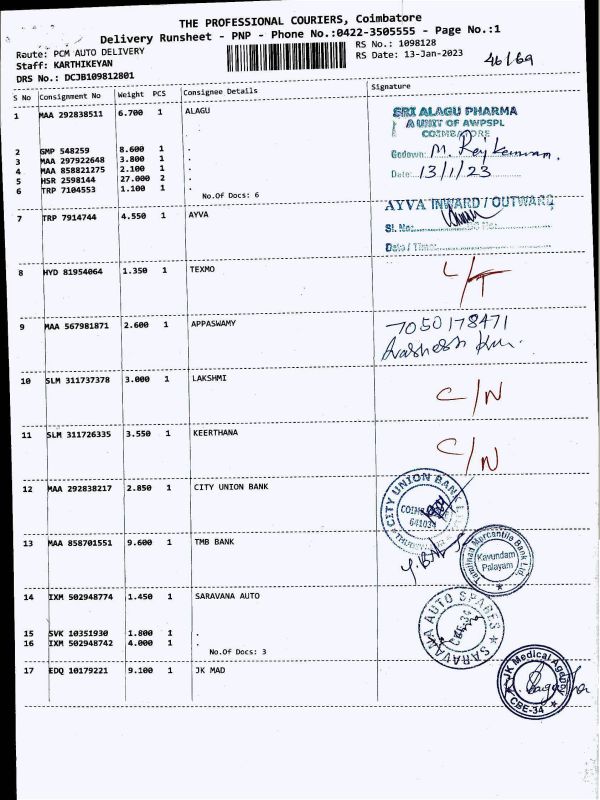 THE PROFESSIONAL COURIERS, Coimbatore
Delivery Runsheet - PNP - Phone No.:0422-3505555 - Page No.:1
Route: PCM AUTO DELIVERY
RS No.: 1098128
Staff: KARTHIKEYAN
RS Date: 13-Jan-2023
46/69
DRS No.: DCJB109812801
S No Consignment No Weight PCS Consignee Details Signature
1 MAA 292838511 6.700 1 ALAGU
SRI ALAGU PHARMA
A UNIT OF AWPSPL
COIMBATORE
2 GMP 548259 8.600 1 .
Godown: M.
3 MAA 297922648 3.800 1 .
4 MAA 858821275 2.100 1 .
Date: 13/1/23
5 HSR 2598144 27.000 2 .
6 TRP 7104553 1.100 1 .
No.Of Docs: 6
7 TRP 7914744 4.550 1 AYVA
AYVA INWARD / OUTWARD
Sl. No:
Date / Time:
8 HYD 81954064 1.350 1 TEXMO
L/T
9 MAA 567981871 2.600 1 APPASWAMY
7050178471
10 SLM 311737378 3.000 1 LAKSHMI
C/N
11 SLM 311726335 3.550 1 KEERTHANA
C/N
12 MAA 292838217 2.850 1 CITY UNION BANK
CITY UNION BANK
641034
13 MAA 858701551 9.600 1 TMB BANK
Tamilnad Mercantile Bank Ltd.
Kavundam
Palayam
14 IXM 502948774 1.450 1 SARAVANA AUTO
SARAVANA AUTO SPARES
CBE-34
15 SVK 10351930 1.800 1 .
16 IXM 502948742 4.000 1 .
No.Of Docs: 3
17 EDQ 10179221 9.100 1 JK MAD
JK Medical Agency
CBE-34